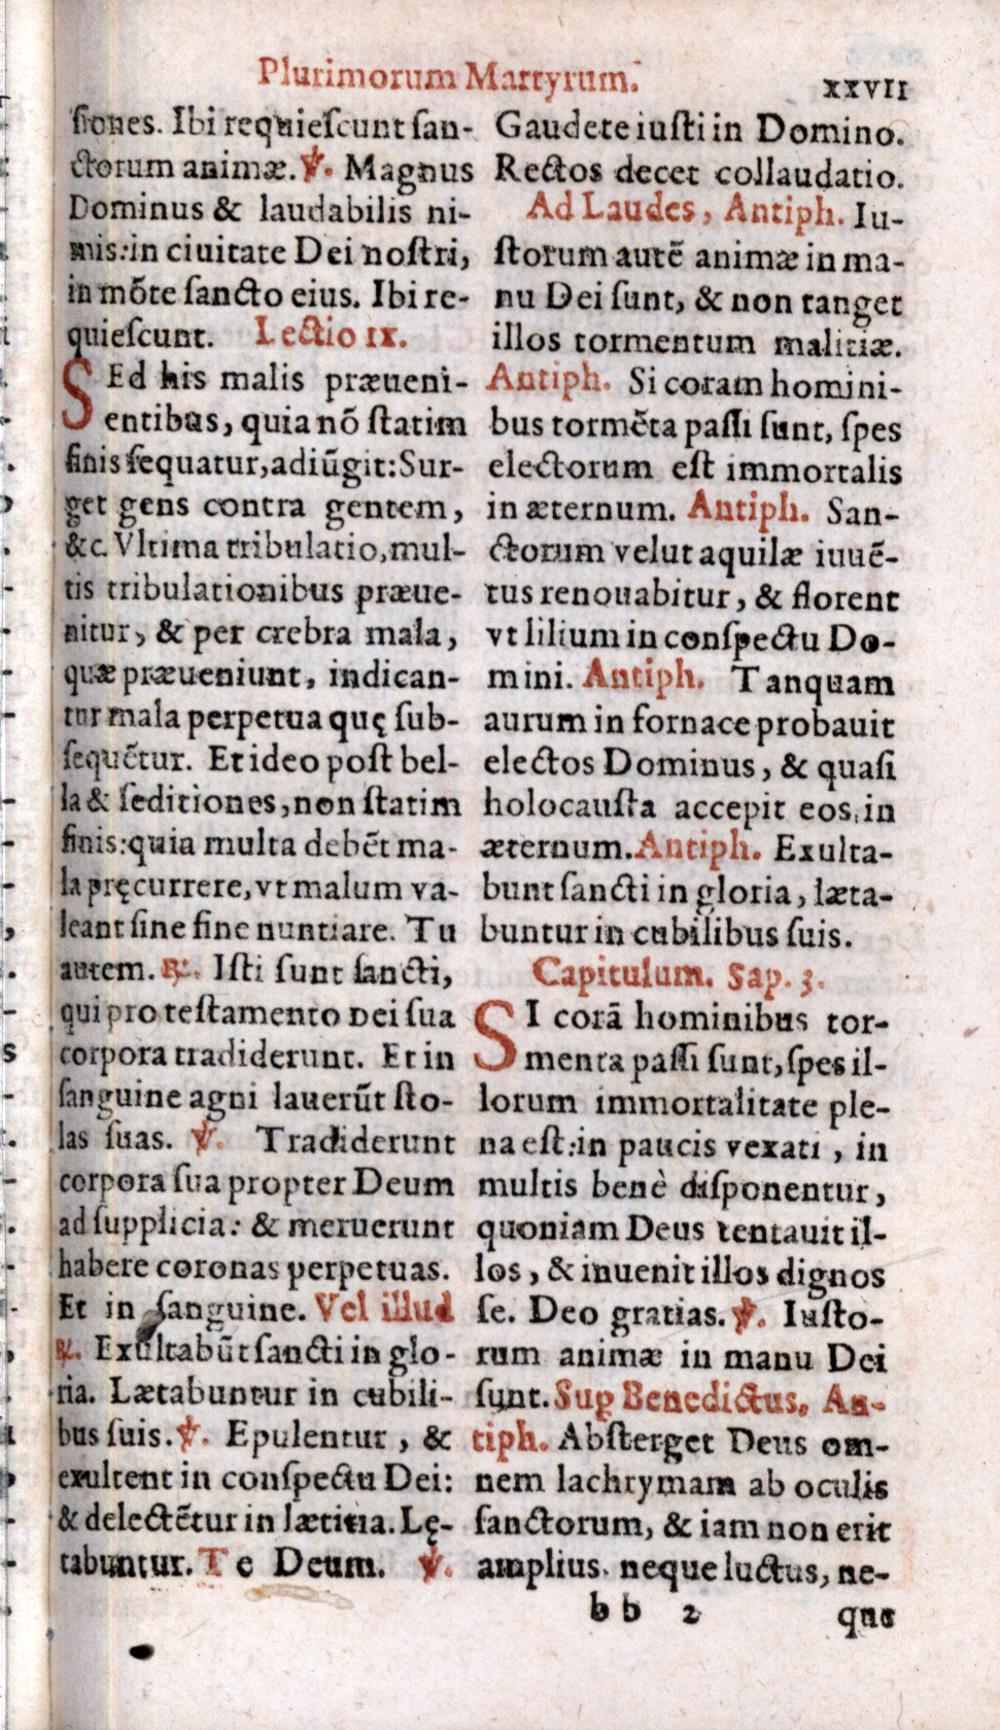 Plurimorum Martyrum.
xxvii
ſiones. Ibi requieſcunt ſan-
ctorum animæ. ℣. Magnus
Dominus & laudabilis ni-
mis: in ciuitate Dei noſtri,
in mõte ſancto eius. Ibi re-
quieſcunt. Lectio ix.
SEd his malis præueni-
entibus, quia nõ ſtatim
finis ſequatur, adiũgit: Sur-
get gens contra gentem,
&c. Vltima tribulatio, mul-
tis tribulationibus præue-
nitur, & per crebra mala,
quæ præueniunt, indican-
tur mala perpetua quę ſub-
ſequẽtur. Et ideo poſt bel-
la & ſeditiones, non ſtatim
finis: quia multa debẽt ma-
la pręcurrere, vt malum va-
leant ſine fine nuntiare. Tu
autem. ℟. Iſti ſunt ſancti,
qui pro teſtamento Dei ſua
corpora tradiderunt. Et in
ſanguine agni lauerũt ſto-
las ſuas. ℣. Tradiderunt
corpora ſua propter Deum
ad ſupplicia: & meruerunt
habere coronas perpetuas.
Et in ſanguine. Vel illud
℟. Exultabũt ſancti in glo-
ria. Lætabuntur in cubili-
bus ſuis. ℣. Epulentur, &
exultent in conſpectu Dei:
& delectẽtur in lætitia. Lę-
tabuntur. Te Deum. ℣.
Gaudete iuſti in Domino.
Rectos decet collaudatio.
Ad Laudes, Antiph. Iu-
ſtorum autẽ animæ in ma-
nu Dei ſunt, & non tanget
illos tormentum malitiæ.
Antiph. Si coram homini-
bus tormẽta paſſi ſunt, ſpes
electorum eſt immortalis
in æternum. Antiph. San-
ctorum velut aquilæ iuuẽ-
tus renouabitur, & florent
vt lilium in conſpectu Do-
mini. Antiph. Tanquam
aurum in fornace probauit
electos Dominus, & quaſi
holocauſta accepit eos, in
æternum. Antiph. Exulta-
bunt ſancti in gloria, læta-
buntur in cubilibus ſuis.
Capitulum. Sap. 3.
SI corã hominibus tor-
menta paſſi ſunt, ſpes il-
lorum immortalitate ple-
na eſt: in paucis vexati, in
multis benè diſponentur,
quoniam Deus tentauit il-
los, & inuenit illos dignos
ſe. Deo gratias. ℣. Iuſto-
rum animæ in manu Dei
ſunt. Sup Benedictus, An-
tiph. Abſterget Deus om-
nem lachrymam ab oculis
ſanctorum, & iam non erit
amplius. neque luctus, ne-
bb 2 que